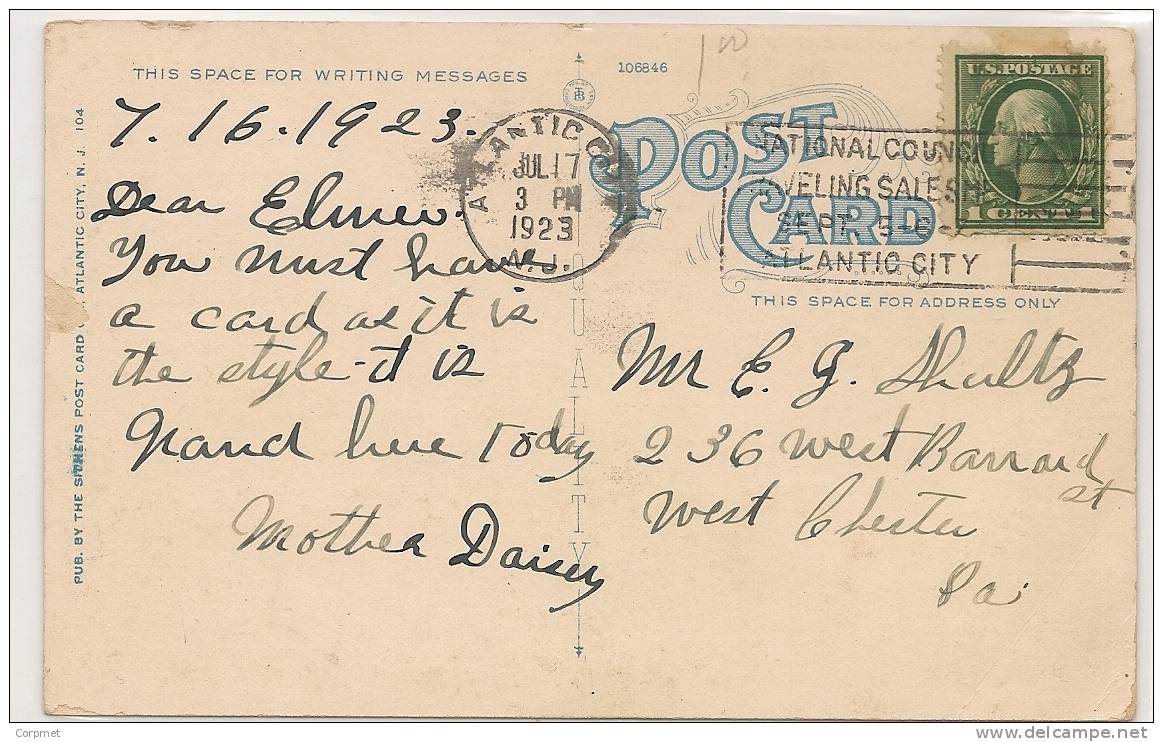 THIS SPACE FOR WRITING MESSAGES
7.16.1923.
Dear Elmer.
You must have
a card as it is
the style - it is
Grand here today
Mother Daisey
PUB. BY THE POST CARD ATLANTIC CITY, N. J. 104
QUALITY
106846
100
POST CARD
ATLANTIC CITY
JUL 17
3 PM
1923
N.J.
NATIONAL COUNCI
VELING SALESME
SEPT. 5-6-
ATLANTIC CITY
U.S. POSTAGE
1 CENT 1
THIS SPACE FOR ADDRESS ONLY
Mr E. G. Shultz
236 West Barnard
st
West Chester
Pa.
www.delcampe.net